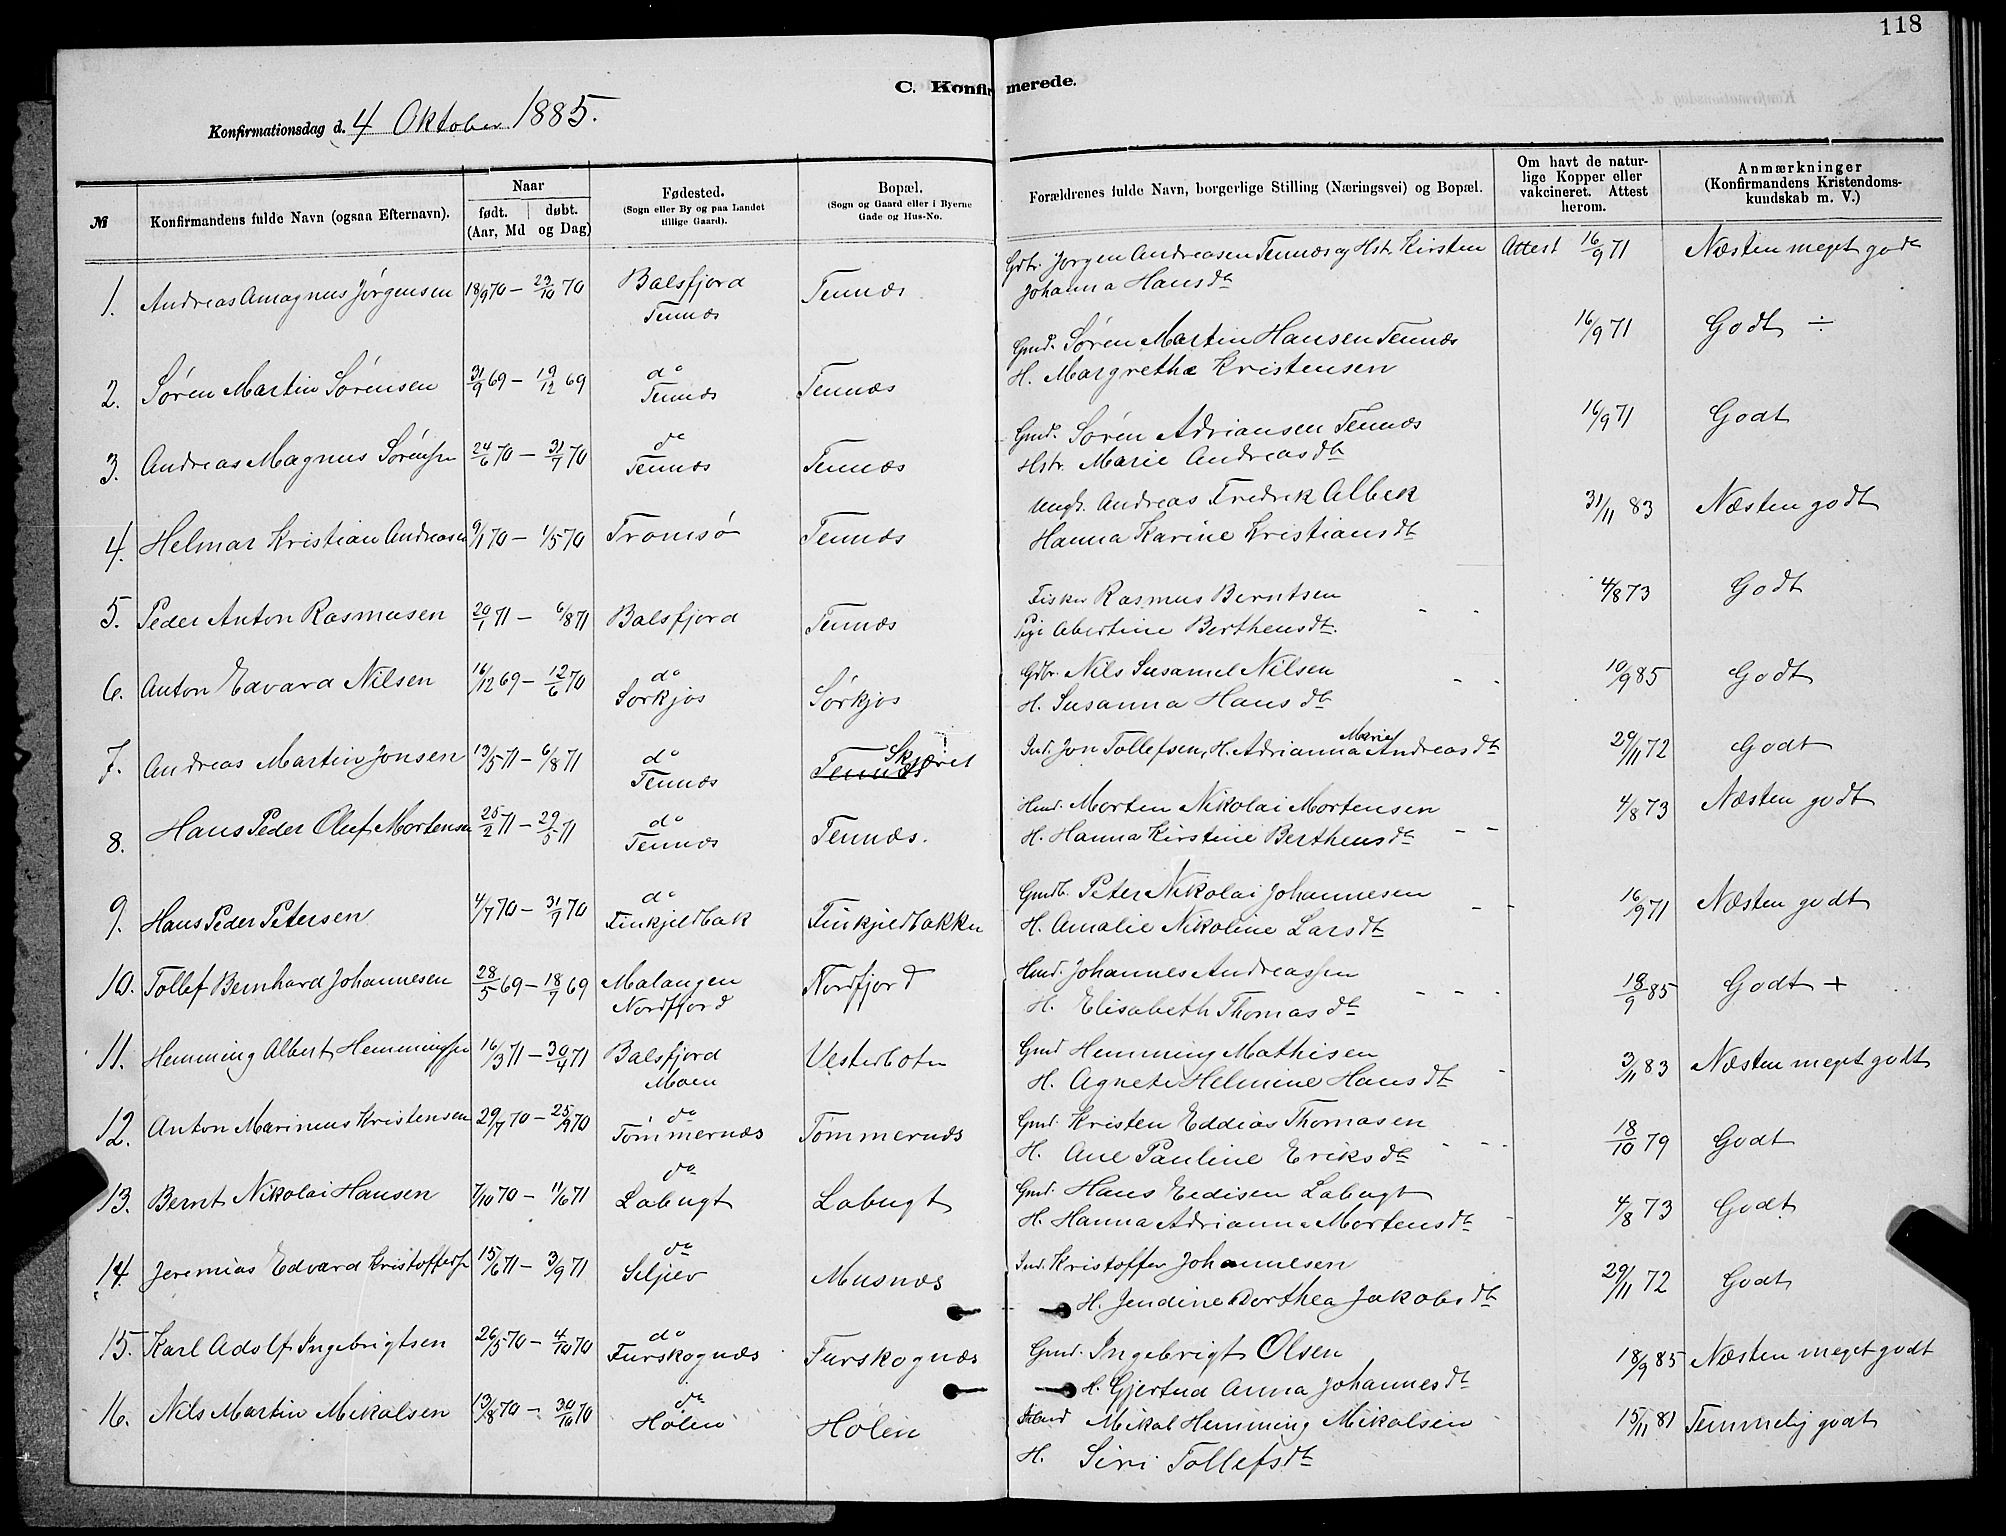 118
C. Konfirmerede.
Konfirmationsdag d. 4 Oktober 1885.
№ | Konfirmandens fulde Navn (ogsaa Efternavn). | Naar født. døbt. (Aar, Md og Dag) | Fødested. (Sogn eller By og paa Landet tillige Gaard). | Bopæl. (Sogn og Gaard eller i Byerne Gade og Hus-No. | Forældrenes fulde Navn, borgerlige Stilling (Næringsvei) og Bopæl. | Om havt de naturlige Kopper eller vakcineret. Attest herom. | Anmærkninger (Konfirmandens Kristendomskundskab m. V.)
1. Andreas Amagnus Jørgensen 18/9 70 – 23/10 70 Balsfjord Tennæs Tennæs. Gdbr. Jørgen Andreasen Tennæs og Hst. Kirsten Johanna Hansdtr Attest 16/9 71 Næsten meget godt
2. Søren Martin Sørensen 31/9 69 – 19/12 69 do Tennæs Tennæs Gmd. Søren Martin Hansen Tennæs H. Margrethe Kristensen 16/9 71 Godt ÷
3. Andreas Magnus Sørensen 24/6 70 – 31/7 70 do Tennæs Tennæs Gmd. Søren Adriansen Tennæs Hstr. Marie Andreasdtr 16/9 71 Godt
4. Helmar Kristian Andreasen 9/1 70 – 1/5 70 Tromsø Tennæs Ungk. Andreas Fredrik Albek Hanna Karine Kristiansdt 31/11 83 Næsten godt
5. Peder Anton Rasmusen 20/1 71 – 6/8 71 Balsfjord Tennæs Fisker Rasmus Berntsen Pige Abertine Berthensdt. - - 4/8 73 Godt
6. Anton Edvard Nilsen 16/12 69 – 12/6 70 do Sørkjos Sørkjos Gdbr. Nils Susamel Nilsen H. Susanna Hansdtr - - 10/9 85 Godt
7. Andreas Martin Jonsen 13/5 71 – 6/8 71 do Tennæs Tennæs Skjæret Ind. Jon Tollefsen, H. Adrianna Marie Andreasdt 29/11 72 Godt
8. Hans Peder Oluf Mortensen 25/2 71 – 29/5 71 do Tennæs Tennæs. Hmd. Morten Nikolai Mortensen H. Hanna Kirstine Berthensdtr - - 4/8 73 Næsten godt
9. Hans Peder Petersen 4/7 70 – 31/7 70 do Finkjeldbak Finkjeldbakken Gmdb. Peter Nikolai Johannesen H. Amalie Nikoline Larsdt - - 16/9 71 Næsten godt
10. Tollef Bernhard Johannesen 28/5 69 – 18/7 69 Malangen Nordfjord Nordfjord Hmd. Johannes Andreassen H. Elisabeth Thomasdtr - - - 18/9 85 Godt +
11. Hemming Albert Hemmingsen 16/3 71 – 30/4 71 Balsfjord Moen Vesterbotn Gmd Hemming Mathisen H. Agnete Helmine Hansdt - 3/11 83 Næsten meget godt
12. Anton Marinius Kristensen 29/7 70 – 25/9 70 do Tømmernæs Tømmernæs Gmd. Kristen Eddias Thomasen H. Ane Pauline Eriksdtr - - - 18/10 79 Godt
13. Bernt Nikolai Hansen 7/10 70 – 11/6 71 do Labugt Labugt Gmd. Hans Eedisen Labugt H. Hanna Adrianna Mortensdt - 4/8 73 Godt
14. Jeremias Edvard Kristoffersen 15/6 71 – 3/9 71 do Seljelv Musnæs Ind. Kristoffer Johannesen H. Jendine Dorthea Jakobsdt 29/11 72 Godt
15. Karl Adolf Ingebrigtsen 26/5 70 – 4/10 70 do Furskognæs Furskognæs Gmd. Ingebrigt Olsen H. Gjertrud Anna Johannesdt 18/9 85 Næsten meget godt
16. Nils Martin Mikalsen 13/8 70 – 30/10 70 do Holen Holen Mikal Hemming Mikalsen H. Siri Tollefsdt 15/11 81 Temmelig godt